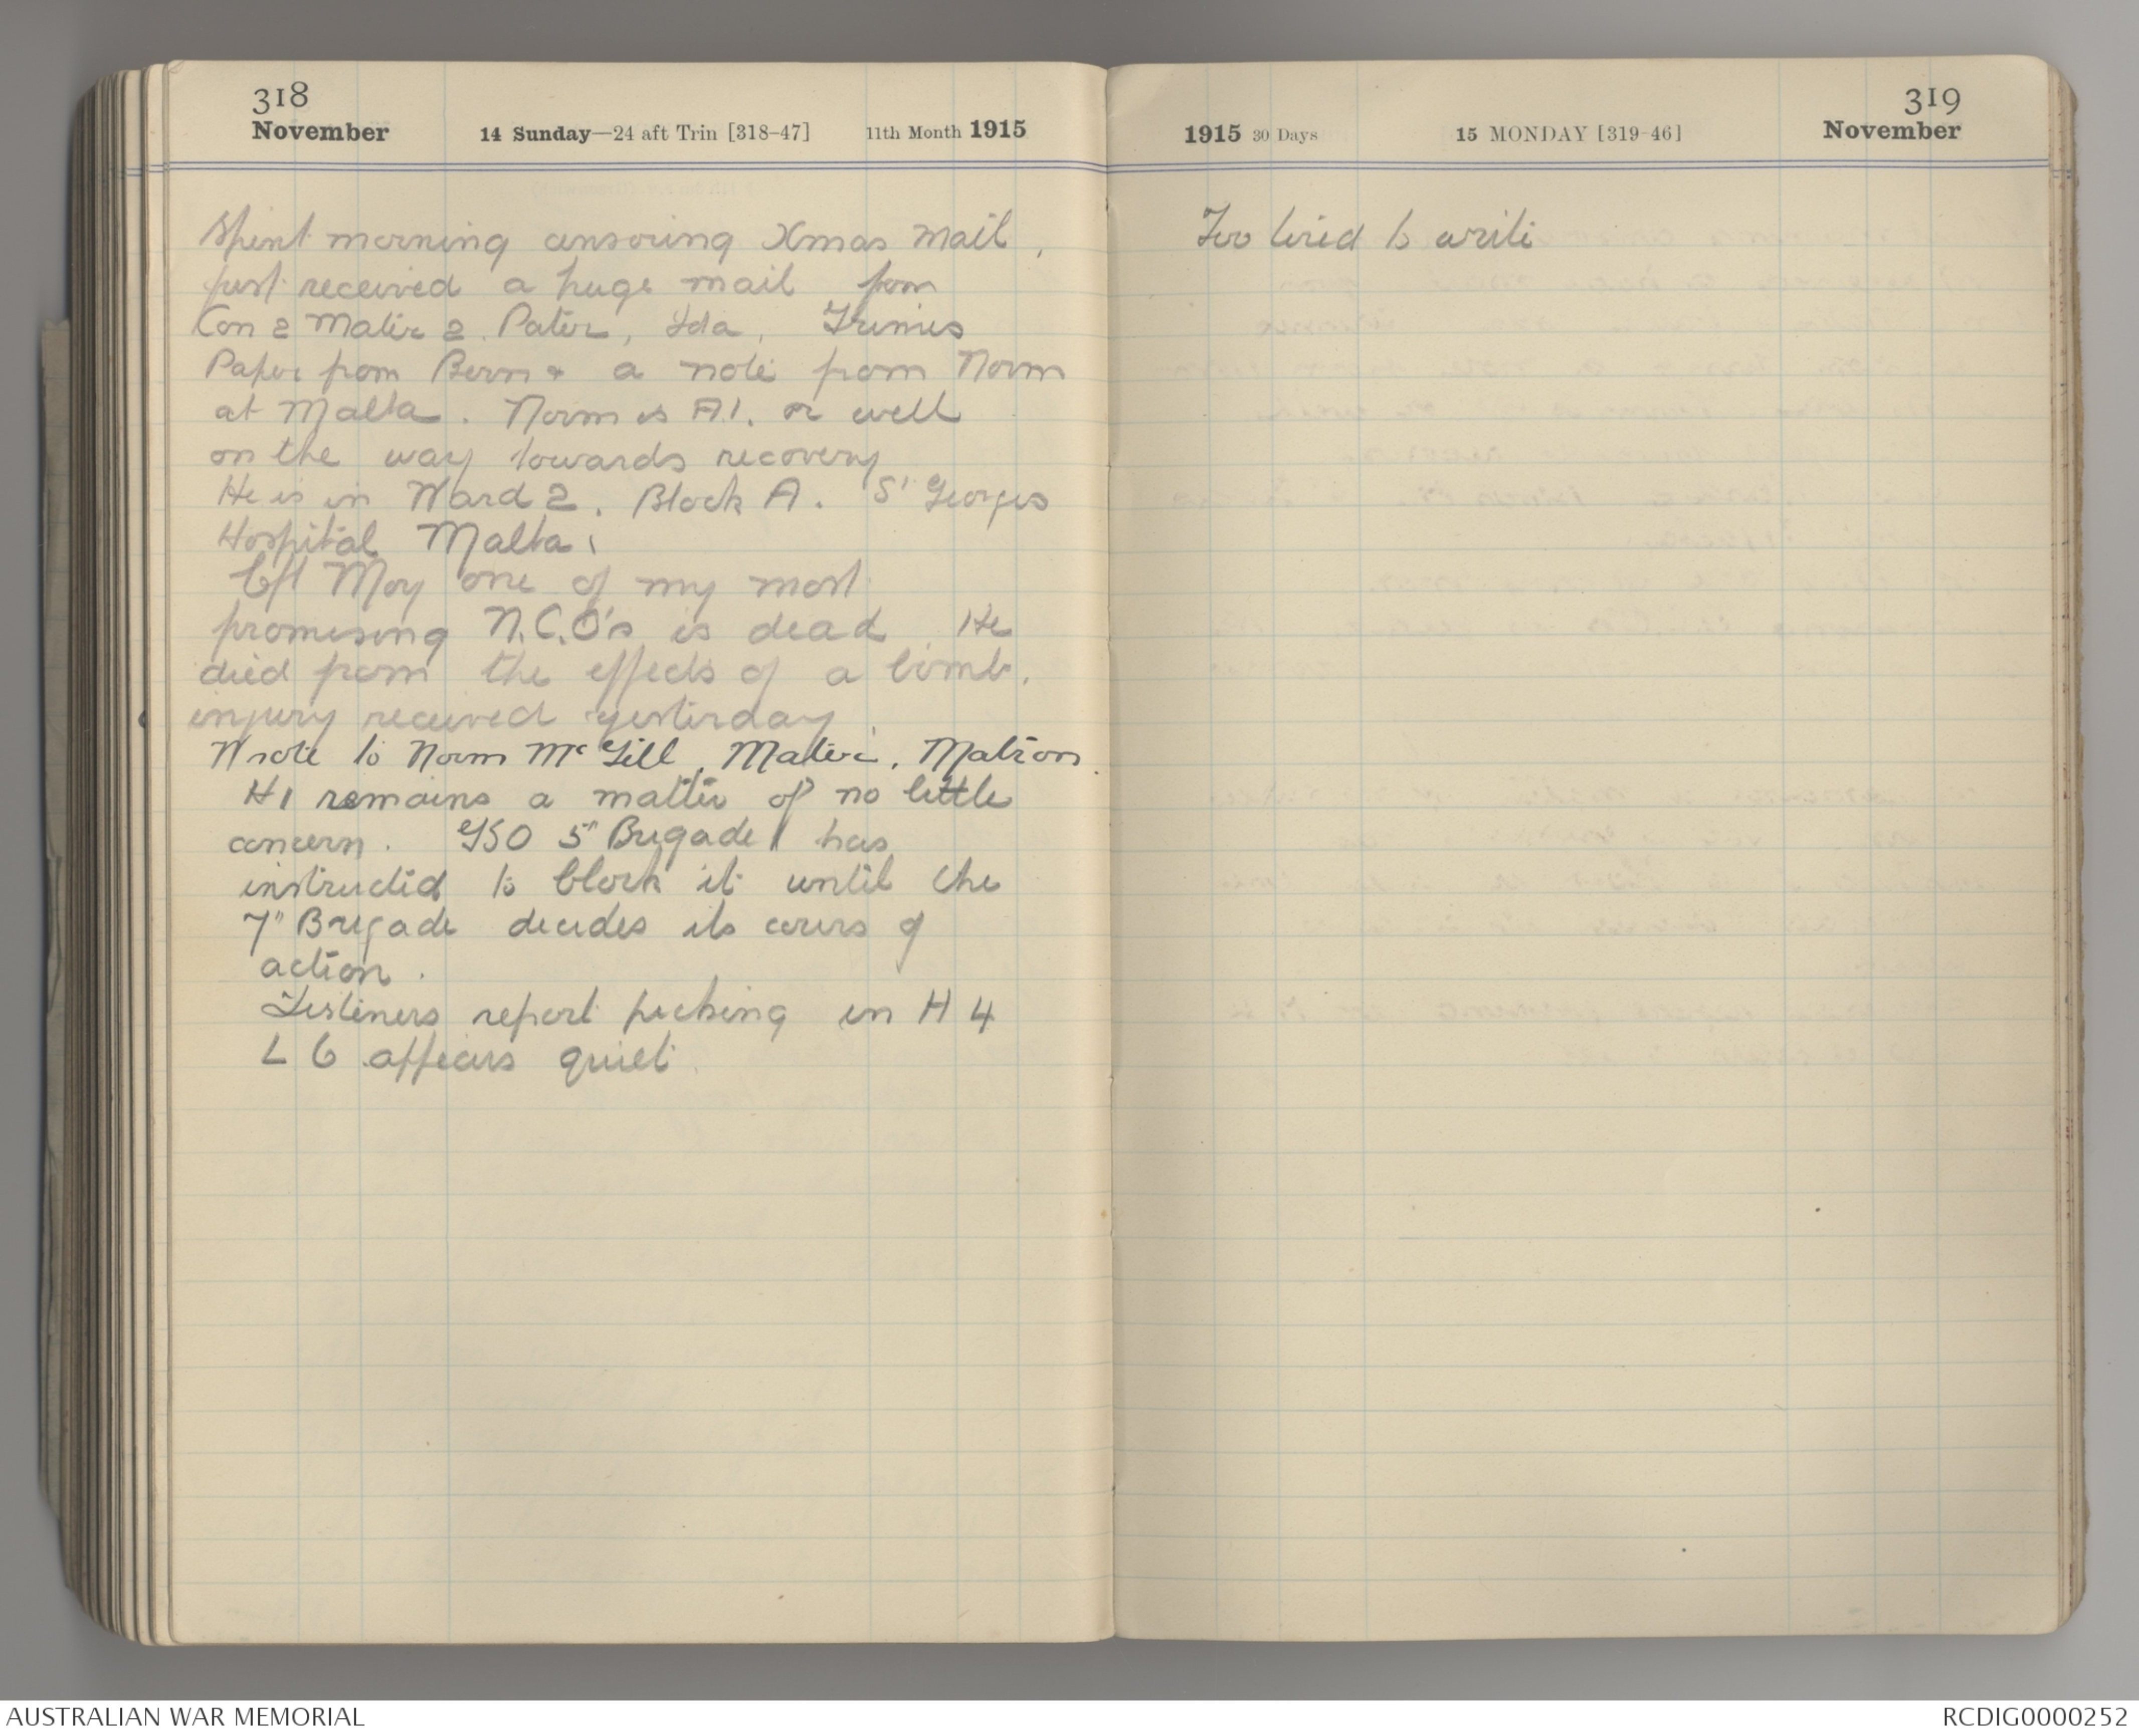 318
November 14 Sunday—24 aft Trin [318-47] 11th Month 1915
Spent morning censoring Xmas Mail,
just received a huge mail from
Con 2 Mater 2. Pater, Ida,
Paper from Bern & a note from Norm
at Malta. Norm is A1. or well
on the way towards recovery
He is in Ward 2. Block A. St Georges
Hospital Malta.
Cpl Moy one of my most
promising N.C.O's is dead. He
died from the effects of a bomb.
injury received yesterday.
Wrote to Norm McGill, Mater, Matron.
H1 remains a matter of no little
concern. GSO 5" Brigade has
instructed to block it until the
7" Brigade decides its cours of
action.
Listiners report picking in H 4
L 6 appears quiet.
319
1915 30 Days 15 MONDAY [319-46] November
Too tired to write
AUSTRALIAN WAR MEMORIAL
RCDIG0000252